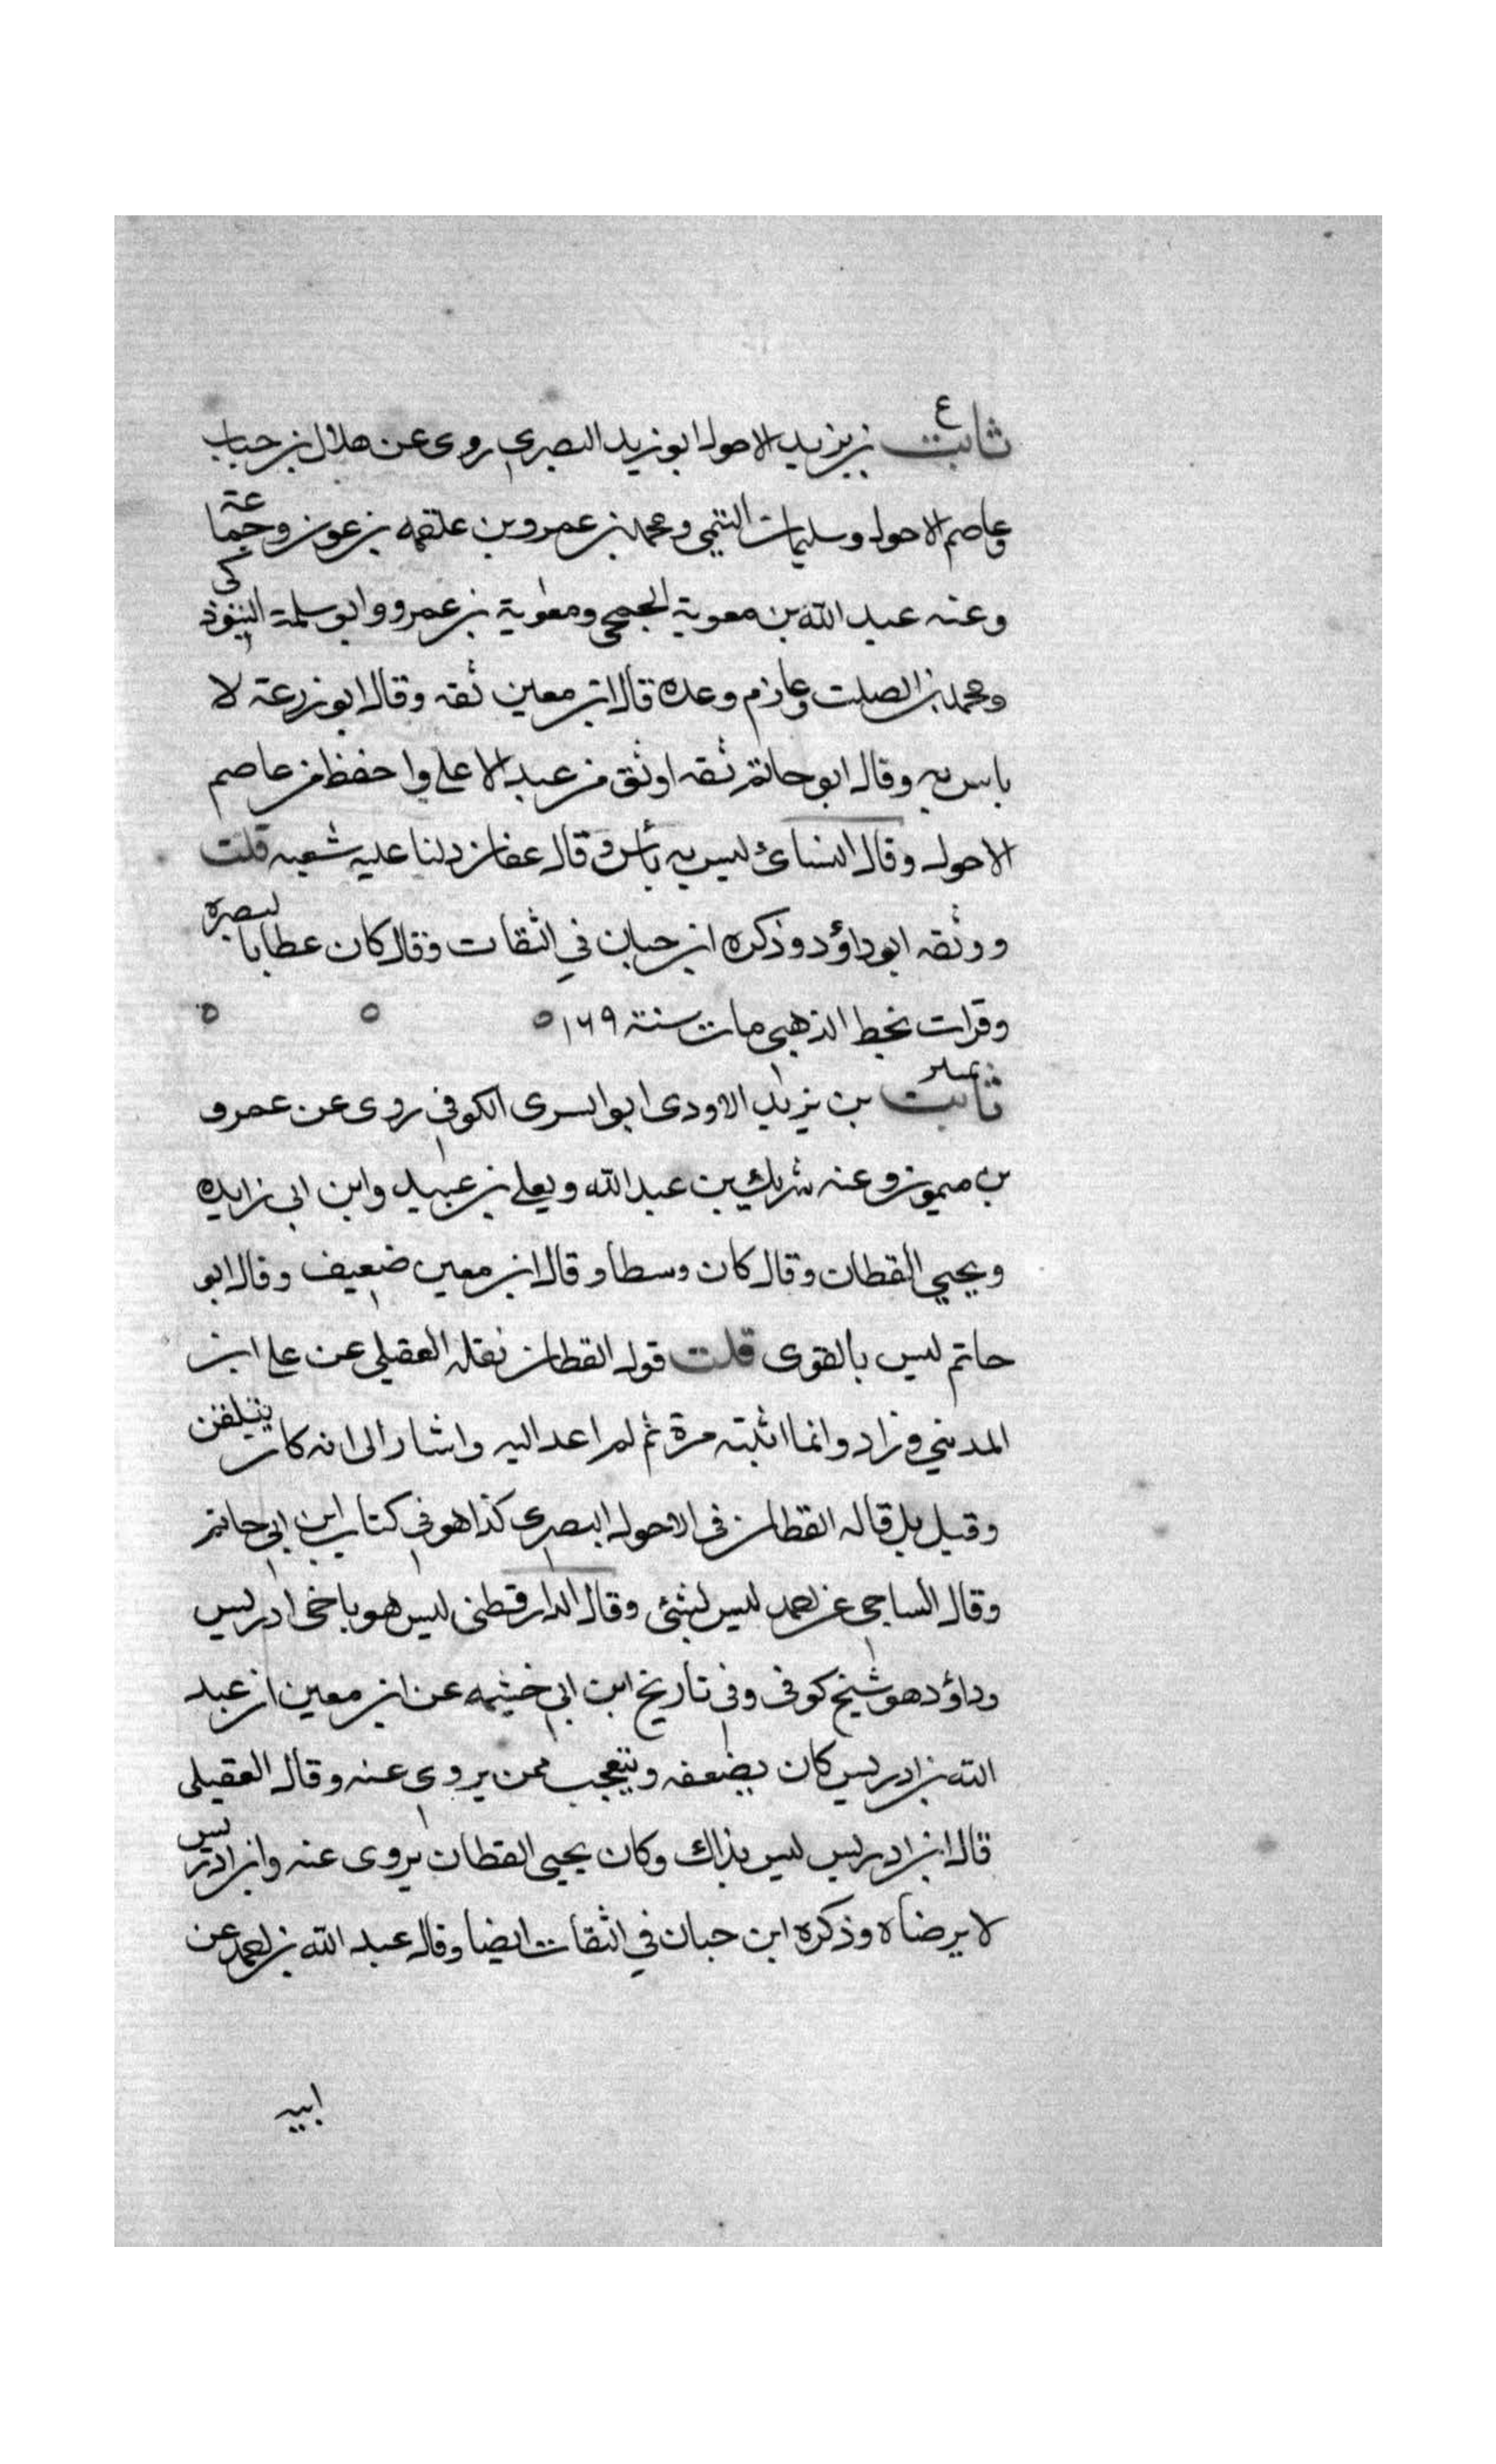 ع
ثابت بن يزيد الاحول ابو زيد البصري روى عن هلال بن حباب
وعاصم الاحول وسليمان التيمي ومحمد بن عمرو بن علقمه بن عون وجماعة
وعنه عبد الله بن معوية الجمحي ومعوية بن عمرو وابو سلمة التبوذكى
ومحمد بن الصلت وعارم وعده قال ابن معين ثقه وقال ابو زرعة لا
باس به وقال ابو حاتم ثقه اوثق من عبد الاعلى واحفظ من عاصم
الاحول وقال النسائ ليس به بأس وقال عفان دلنا عليه شعبه قلت
ووثقه ابو داؤد وذكره ابن حبان في الثقات وقال كان عطابا لبصره
وقرات بخط الذهبي مات سنة ١٦٩ ٥ ٥ ٥
ثابت بن يزيد الاودى ابو السرى الكوفي روى عن عمرو
بن ميمون وعنه شريك بن عبد الله ويعلى بن عبيد وابن ابي زايده
ويحيي القطان وقال كان وسطا وقال ابن معين ضعيف وقال ابو
حاتم ليس بالقوى قلت قول القطان نقله العقيلي عن على ابن
المديني وزاد وانما اتيته مرة ثم لم اعد اليه واشار الى انه كان يتلقن
وقيل بل قاله القطان في الاحول البصرى كذا هو في كتاب ابن ابي حاتم
وقال الساجي عن احمد ليس بشئ وقال الدارقطني ليس هو باخى ادريس
وداؤد هو شيخ كوفى وفي تاريخ ابن ابي خيثمه عن ابن معين ان عبد
الله بن ادريس كان يضعفه ويتعجب ممن يروي عنه وقال العقيلى
قال ابن ادريس ليس بذاك وكان يحيى القطان يروى عنه وابن ادريس
لا يرضاه وذكره ابن حبان في الثقات ايضا وقال عبد الله بن احمد عن
ابيه